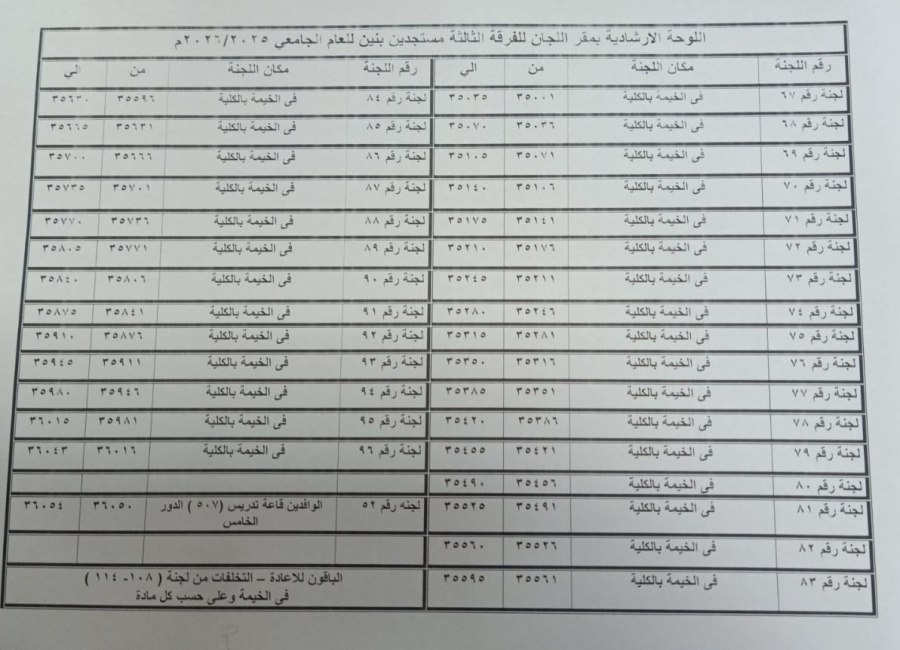 اللوحة الارشادية بمقر اللجان للفرقة الثالثة مستجدين بنين للعام الجامعي ٢٠٢٦/٢٠٢٥م
رقم اللجنة مكان اللجنة من الي رقم اللجنة مكان اللجنة من الي
لجنة رقم ٦٧ فى الخيمة بالكلية ٣٥٠٠١ ٣٥٠٣٥ لجنة رقم ٨٤ فى الخيمة بالكلية ٣٥٥٩٦ ٣٥٦٣٠
لجنة رقم ٦٨ فى الخيمة بالكلية ٣٥٠٣٦ ٣٥٠٧٠ لجنة رقم ٨٥ فى الخيمة بالكلية ٣٥٦٣١ ٣٥٦٦٥
لجنة رقم ٦٩ فى الخيمة بالكلية ٣٥٠٧١ ٣٥١٠٥ لجنة رقم ٨٦ فى الخيمة بالكلية ٣٥٦٦٦ ٣٥٧٠٠
لجنة رقم ٧٠ فى الخيمة بالكلية ٣٥١٠٦ ٣٥١٤٠ لجنة رقم ٨٧ فى الخيمة بالكلية ٣٥٧٠١ ٣٥٧٣٥
لجنة رقم ٧١ فى الخيمة بالكلية ٣٥١٤١ ٣٥١٧٥ لجنة رقم ٨٨ فى الخيمة بالكلية ٣٥٧٣٦ ٣٥٧٧٠
لجنة رقم ٧٢ فى الخيمة بالكلية ٣٥١٧٦ ٣٥٢١٠ لجنة رقم ٨٩ فى الخيمة بالكلية ٣٥٧٧١ ٣٥٨٠٥
لجنة رقم ٧٣ فى الخيمة بالكلية ٣٥٢١١ ٣٥٢٤٥ لجنة رقم ٩٠ فى الخيمة بالكلية ٣٥٨٠٦ ٣٥٨٤٠
لجنة رقم ٧٤ فى الخيمة بالكلية ٣٥٢٤٦ ٣٥٢٨٠ لجنة رقم ٩١ فى الخيمة بالكلية ٣٥٨٤١ ٣٥٨٧٥
لجنة رقم ٧٥ فى الخيمة بالكلية ٣٥٢٨١ ٣٥٣١٥ لجنة رقم ٩٢ فى الخيمة بالكلية ٣٥٨٧٦ ٣٥٩١٠
لجنة رقم ٧٦ فى الخيمة بالكلية ٣٥٣١٦ ٣٥٣٥٠ لجنة رقم ٩٣ فى الخيمة بالكلية ٣٥٩١١ ٣٥٩٤٥
لجنة رقم ٧٧ فى الخيمة بالكلية ٣٥٣٥١ ٣٥٣٨٥ لجنة رقم ٩٤ فى الخيمة بالكلية ٣٥٩٤٦ ٣٥٩٨٠
لجنة رقم ٧٨ فى الخيمة بالكلية ٣٥٣٨٦ ٣٥٤٢٠ لجنة رقم ٩٥ فى الخيمة بالكلية ٣٥٩٨١ ٣٦٠١٥
لجنة رقم ٧٩ فى الخيمة بالكلية ٣٥٤٢١ ٣٥٤٥٥ لجنة رقم ٩٦ فى الخيمة بالكلية ٣٦٠١٦ ٣٦٠٤٣
لجنة رقم ٨٠ فى الخيمة بالكلية ٣٥٤٥٦ ٣٥٤٩٠
لجنة رقم ٨١ فى الخيمة بالكلية ٣٥٤٩١ ٣٥٥٢٥ لجنه رقم ٥٢ الوافدين قاعة تدريس (٥٠٧ ) الدور ٣٦٠٥٠ ٣٦٠٥٤
الخامس
لجنة رقم ٨٢ فى الخيمة بالكلية ٣٥٥٢٦ ٣٥٥٦٠
لجنة رقم ٨٣ فى الخيمة بالكلية ٣٥٥٦١ ٣٥٥٩٥ الباقون للاعادة – التخلفات من لجنة ( ١٠٨- ١١٤ )
فى الخيمة وعلى حسب كل مادة